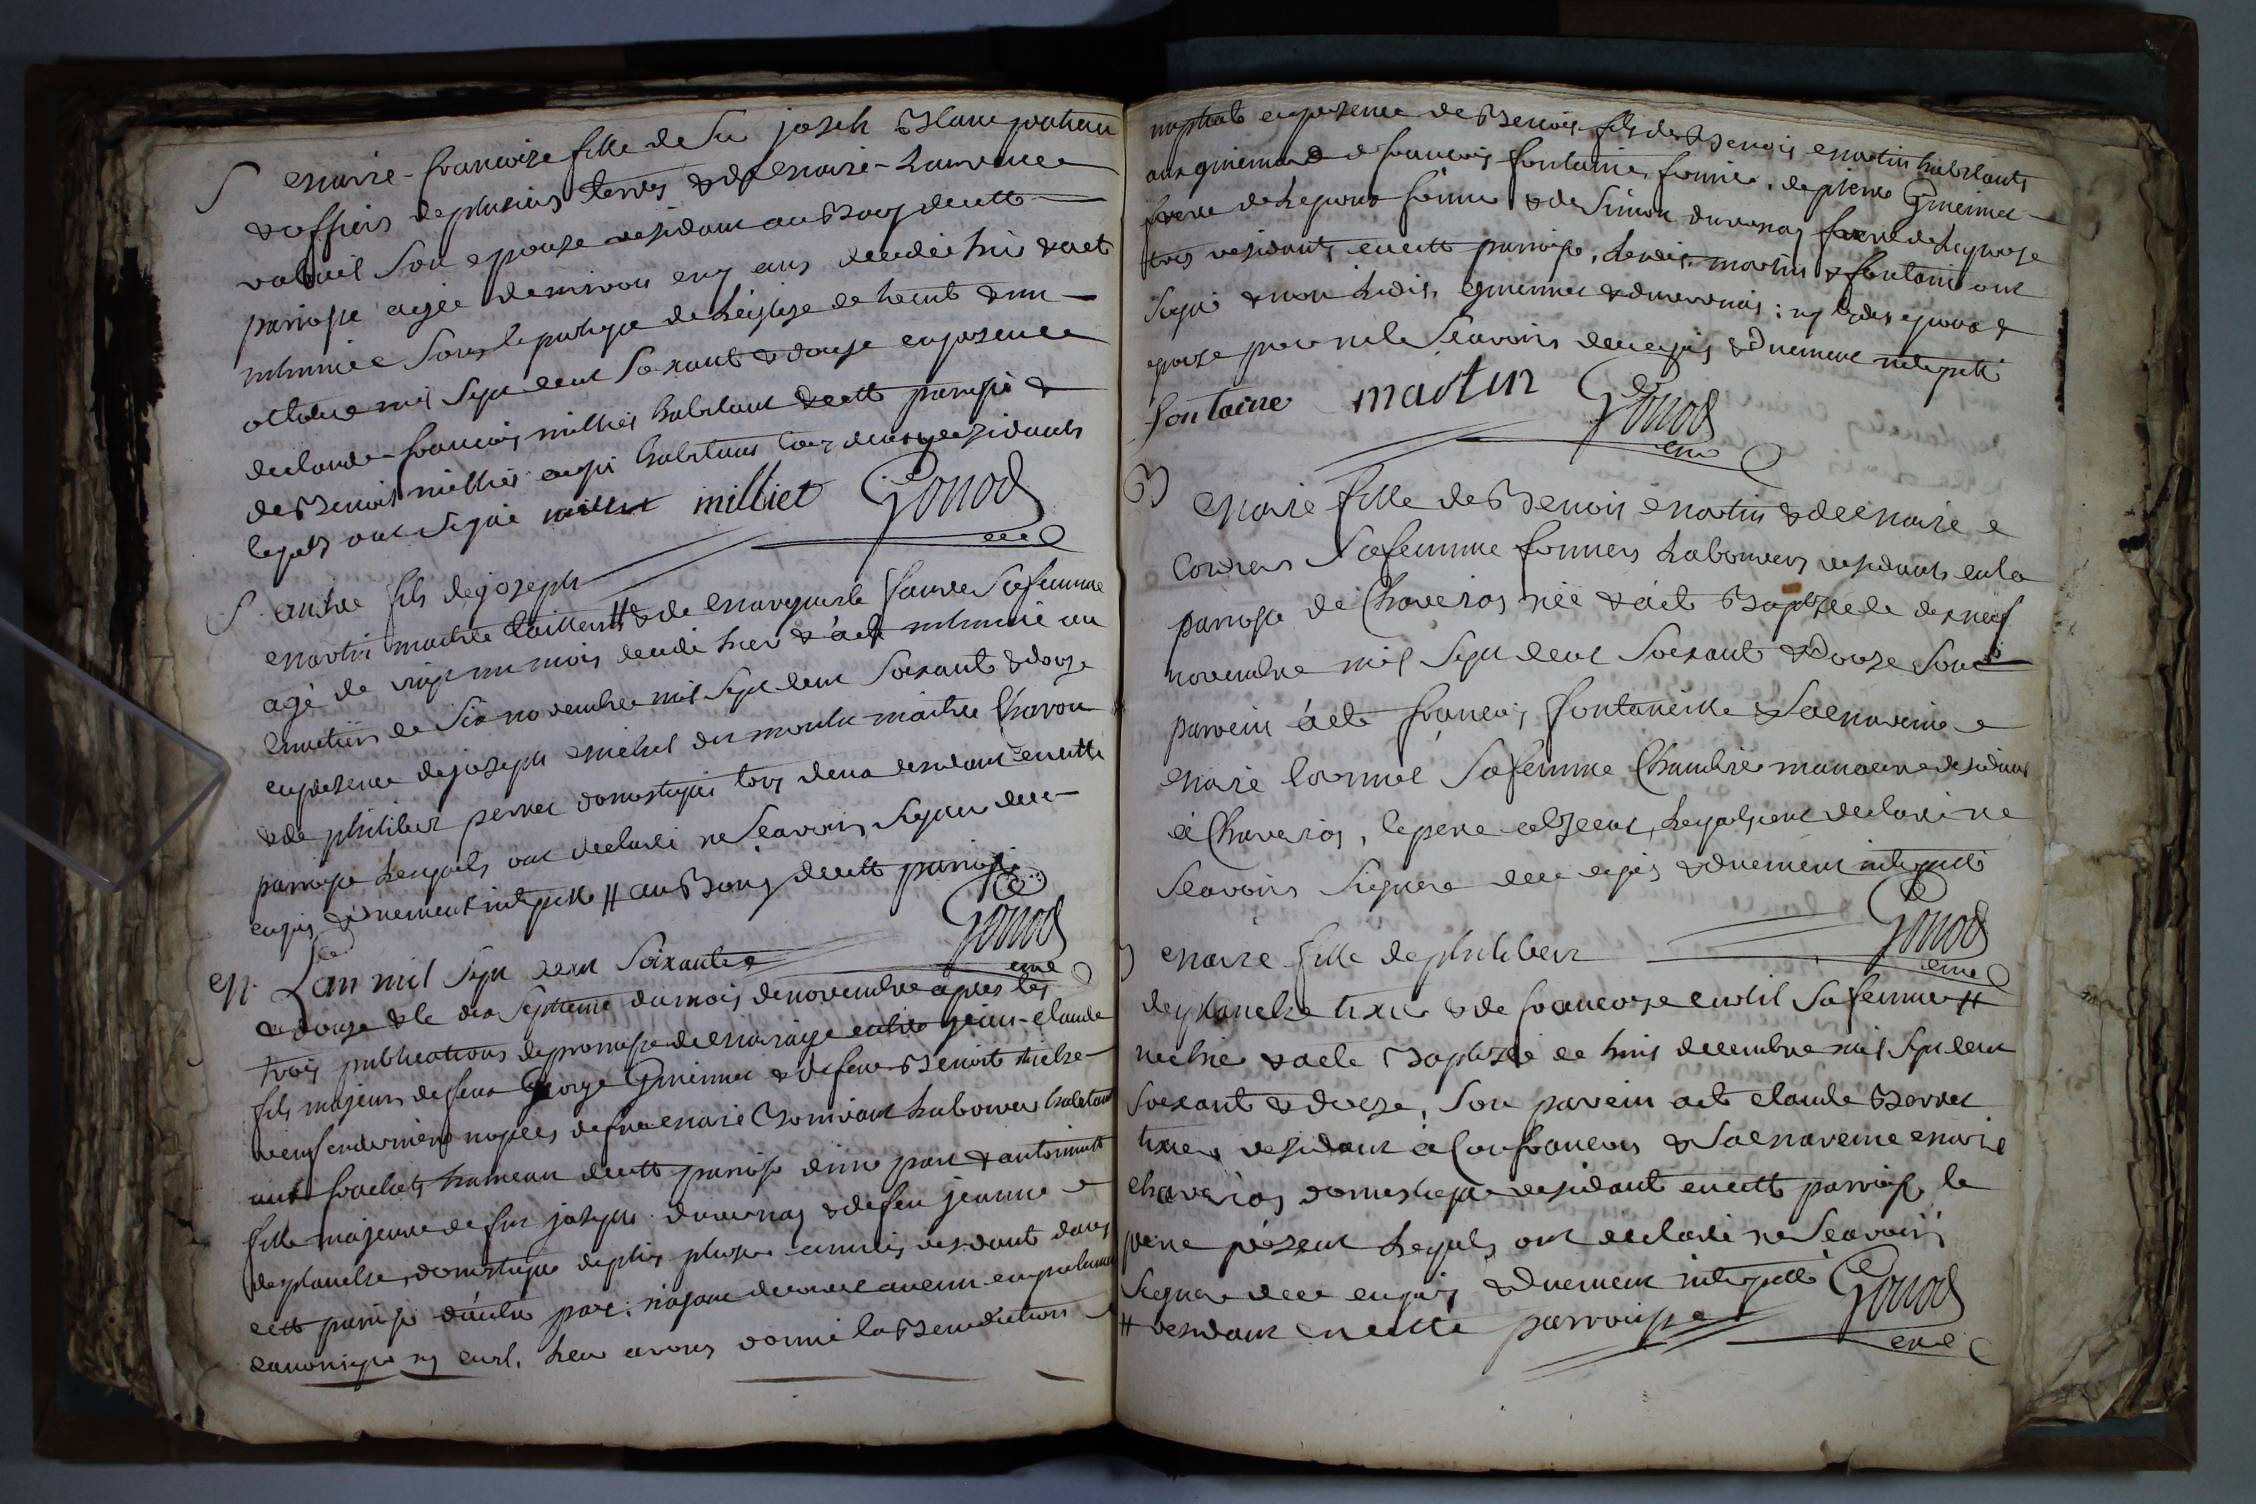 S Marie-francoise fille de feu joseph Blanc praticien
& officier de plusieurs terres & de Marie-Laurence
son epouse residant au Bourg de cette
parroisse agée d'environ cinq ans decedée hier & a eté
inhumée sous le portique de l'église de ce
octobre mil sept cent soixante & douze en presence
de claude-francois milliet habitant de cette parroisse &
de Benoit milliet aussi habitant tous deux residants
lesquels ont signé milliet milliet Gonod
curé
S. andré fils de joseph
Martin maitre tailleur # & de Marguerite favre sa femme
agé de vingt un mois decedé hier & a eté inhumé au
cimetiere le six novembre mil sept cent soixante & douze
en presence de joseph Michel du moulin maitre Charon
& de philibert perret domestique tous deux residant en cette
parroisse lesquels ont declaré ne scavoir signer de ce
enquis & duement interpellé # au Bourg de cette parroisse
Gonod
curé
M. L'an mil sept cent soixante
& douze & le dix septieme du mois de novembre après les
trois publications de promesse de Mariage entre jean-claude
fils majeur de feu George Guienner & de feue Benoite
veuf en dernieres noces de feue Marie Bonivant laboureur habitant
aux frachets hameau de cette parroisse d'une part & antoinette
fille majeure de feu joseph duvernay & de feu jeanne
desplanches, domestique depuis plusieurs années residante dans
cette parroisse d'autre part: n'ayant decouvert aucun empechement
canonique ny civil, leur avons donné la Benediction
nuptiale en presence de Benoit fils de Benoit Martin habitants
aux guiemard & francois fontaine fermier, de pierre Guienner
frere de l'epoux fermier & de Simon duvernay frere de l'epouse
tous residants en cette parroisse, lesdits martin & fontaine ont
signé & non lesdits Guienner & duvernay; ny lesdits epoux &
epouse pour ne le scavoir de ce enquis & duement interpellé
fontaine martin Gonod
curé
B
Marie fille de Benoit Martin & de Marie
sa femme fermiers laboureurs residants en la
parroisse de Chaveiria née & a eté Baptizée le dix neuf
novembre mil sept cent soixante & Douze son
parrein a eté francois fontaneille & sa Marreine
Marie sa femme Chambrier manoeuvre residant
à Chaveiria, le pere absent, lesquels ont declaré ne
scavoir signer de ce enquis & duement interpellé
Gonod
curé
Marie fille de philibert
desplanche tixier & de francoise curtil sa femme #
née hier & a eté Baptizée le huit decembre mil sept cent
soixante & douze, son parrein a eté claude Borret
tixier residant à Confrancon & sa Marreine Marie
chaveiria domestique residante en cette parroisse le
pere présent lesquels ont declaré ne scavoir
signer de ce enquis & duement interpellé Gonod
# residant en cette parroisse curé